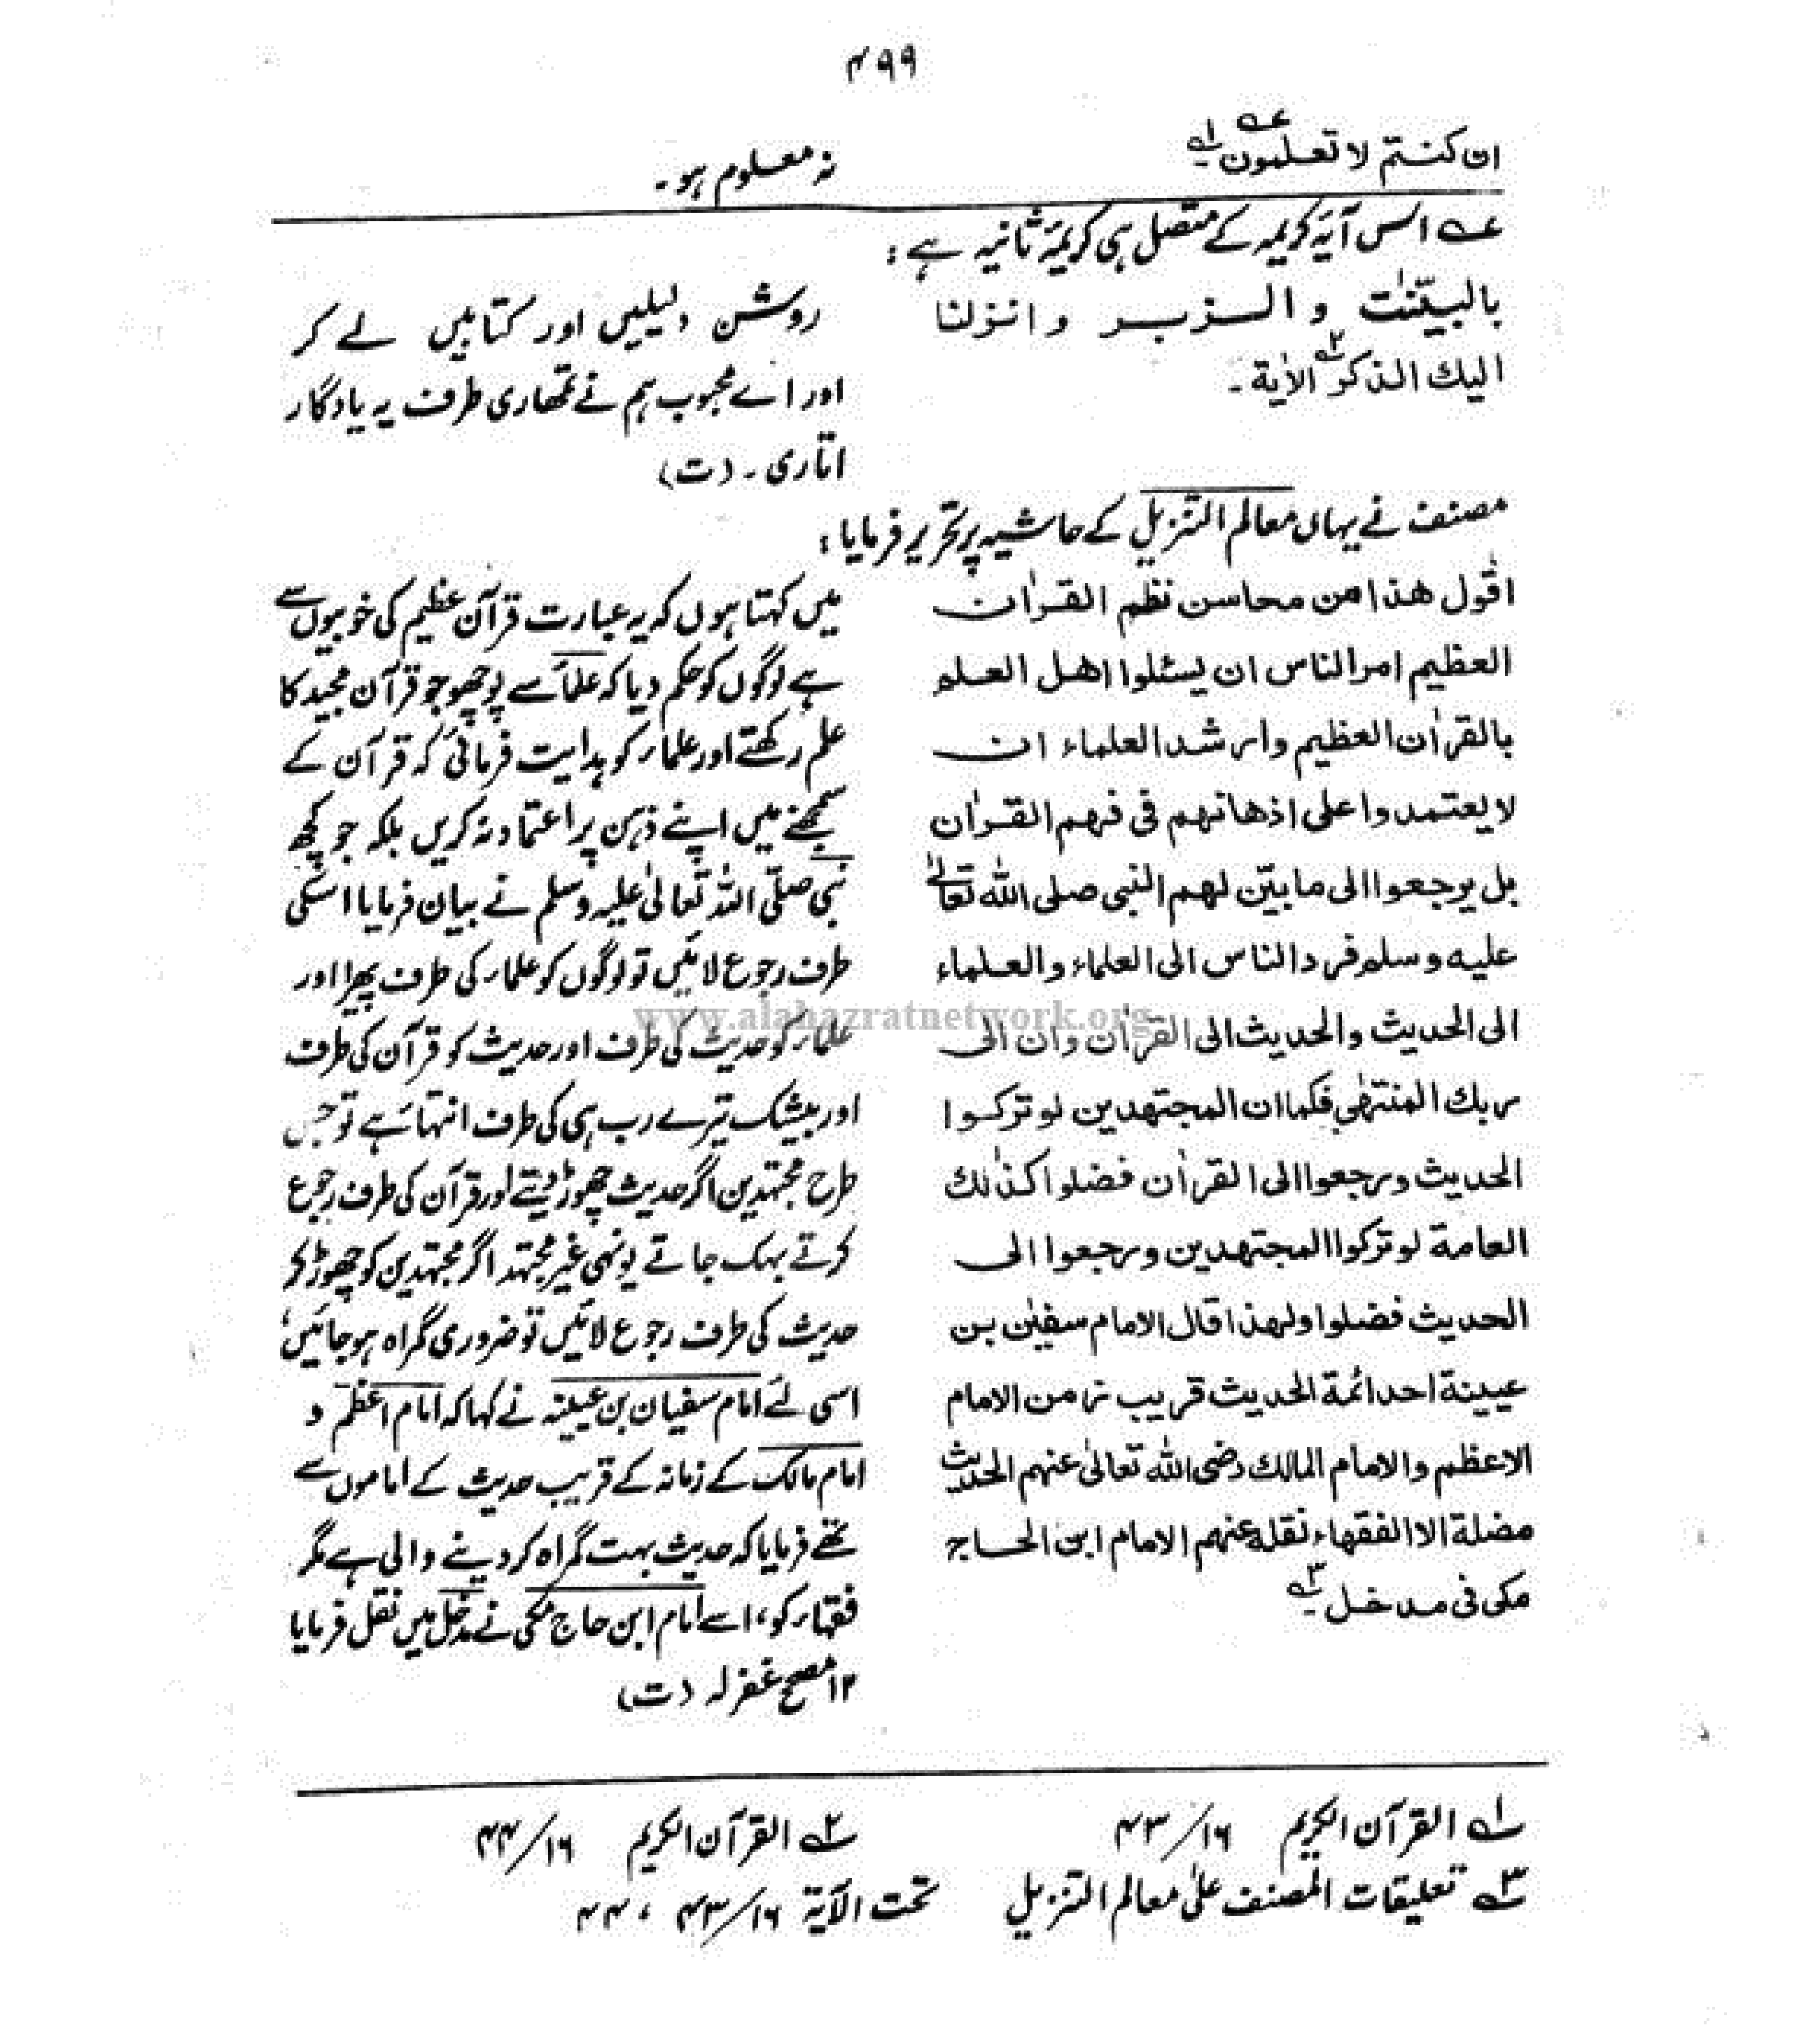 ۴۹۹
ان کنتم لا تعلمون۔
نہ معلوم ہو۔
عہ اس آیۂ کریمہ کے متصل ہی کریمۂ ثانیہ ہے :
بالبیّنٰت والزبر وانزلنا
الیك الذکر۲ الاٰیة۔
روشن دلیلیں اور کتابیں لے کر
اور اے محبوب ہم نے تمھاری طرف یہ یادگار
اتاری۔ (ت)
مصنف نے یہاں معالم التنزیل کے حاشیہ پر تحریر فرمایا :
اقول ھذا من محاسن نظم القراٰن
العظیم امر الناس ان یسئلوا اھل العلم
بالقراٰن العظیم وارشد العلماء ان
لا یعتمدوا علی اذھانھم فی فہم القراٰن
بل یرجعوا الی ما بیّن لھم النبی صلی اللہ تعالٰی
علیہ وسلم فرد الناس الی العلماء والعلماء
الی الحدیث والحدیث الی القراٰن وان الی
ربك المنتہٰی فکما ان المجتہدین لو ترکوا
الحدیث ورجعوا الی القراٰن فضلوا کذٰلك
العامة لو ترکوا المجتہدین ورجعوا الی
الحدیث فضلوا ولہذا قال الامام سفیٰن بن
عیینة احد ائمة الحدیث قریب زمن الامام
الاعظم والامام المالك رضی اللہ تعالٰی عنہم الحدیث
مضلة الا الفقہاء نقلہ عنہم الامام ابن الحاج
مکی فی مدخل۳۔
میں کہتا ہوں کہ یہ عبارت قرآن عظیم کی خوبیوں سے
ہے لوگوں کو حکم دیا کہ علماء سے پوچھو جو قرآن مجید کا
علم رکھتے اور علماء کو ہدایت فرمائی کہ قرآن کے
سمجھنے میں اپنے ذہن پر اعتماد نہ کریں بلکہ جو کچھ
نبی صلی اللہ تعالٰی علیہ وسلم نے بیان فرمایا اسکی
طرف رجوع لائیں تو لوگوں کو علماء کی طرف پھیرا اور
علماء کو حدیث کی طرف اور حدیث کو قرآن کی طرف
اور بیشک تیرے رب ہی کی طرف انتہاء ہے تو جس
طرح مجتہدین اگر حدیث چھوڑ دیتے اور قرآن کی طرف رجوع
کرتے بہک جاتے یونہی غیر مجتہد اگر مجتہدین کو چھوڑ کر
حدیث کی طرف رجوع لائیں تو ضروری گمراہ ہو جائیں،
اسی لئے امام سفیان بن عیینہ نے کہا کہ امام اعظم و
امام مالک کے زمانہ کے قریب حدیث کے اماموں سے
تھے فرمایا کہ حدیث بہت گمراہ کر دینے والی ہے مگر
فقہاء کو، اسے امام ابن حاج مکی نے مدخل میں نقل فرمایا
۱۲ مصحح غفرلہ (ت)
www.alahazratnetwork.org
۱ القرآن الکریم ۱۶/۴۳
۲ القرآن الکریم ۱۶/۴۴
۳ تعلیقات المصنف علٰی معالم التنزیل تحت الآیة ۱۶/۴۳، ۴۴